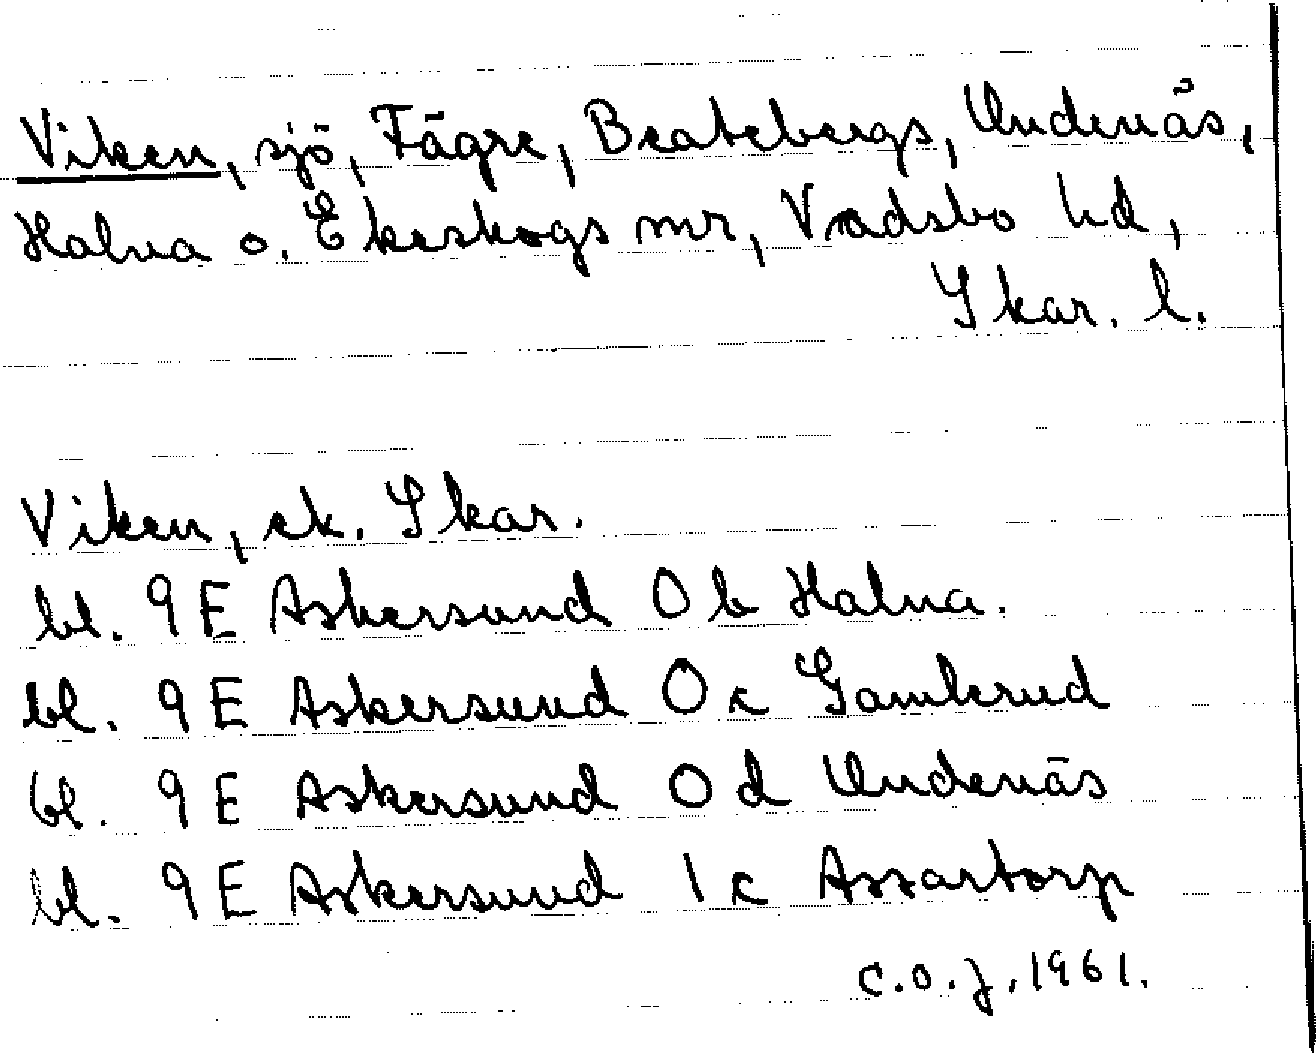 Viken, sjö, Fägre, Beatebergs, Undenäs,
Halna o. Ekeskogs snr, Vadsbo hd,
Skar. l.
Viken, ek. Skar.
bl. 9 E Askersund 0 b Halna.
bl. 9 E Askersund 0 c Sannerud
bl. 9 E Askersund 0 d Undenäs
bl. 9 E Askersund 1 c Assartorp
C.O.J. 1961.